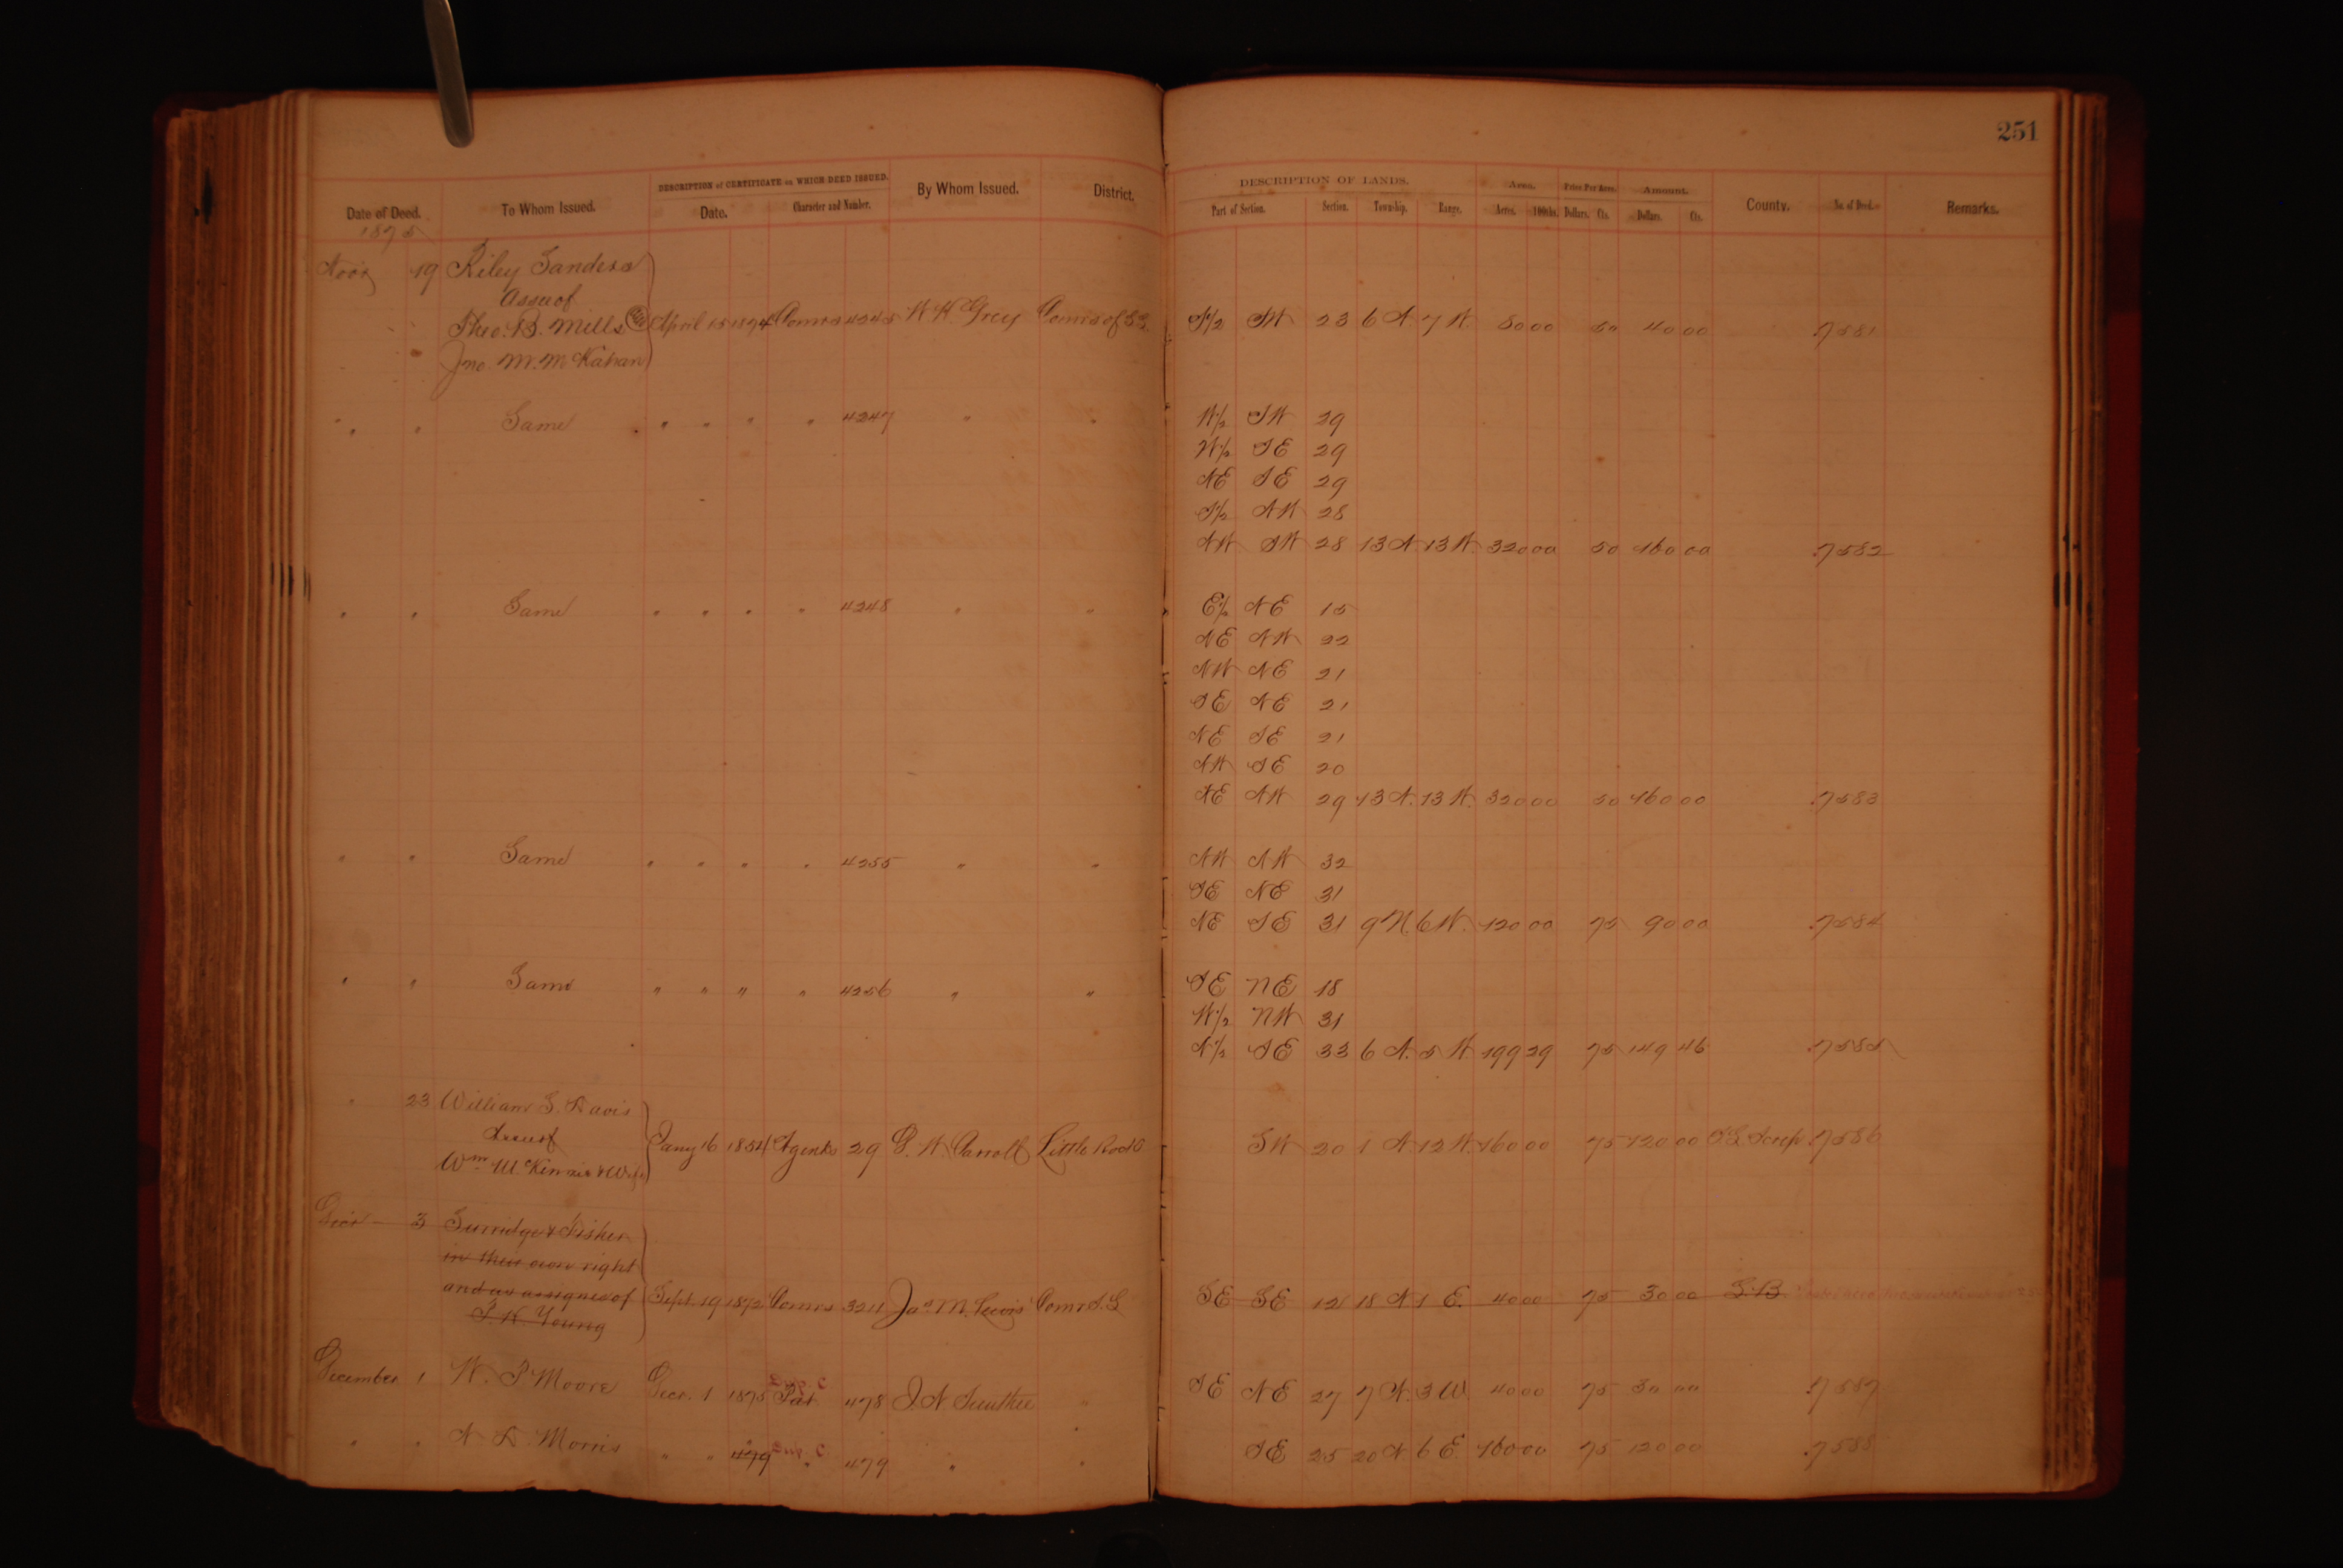 251
DESCRIPTION of CERTIFICATE on WHICH DEED ISSUED. DESCRIPTION OF LANDS. Area. Price Per Acre. Amount.
Date of Deed. To Whom Issued. Date. Character and Number. By Whom Issued. District. Part of Section. Section. Township. Range. Acres. 100ths. Dollars. Cts. Dollars. Cts. County. No. of Deed. Remarks.
1875
Nov 19 Riley Sanders
Assee of
Theo. B. Mills April 15 1874 Comrs 4245 W W Grey Comrs of S.S. S½ SW 23 6 N. 7 W. 80 00 50 40 00 7581
Jno M. McKahan
" " Same " " " " 4247 " " W½ SW 29
W½ SE 29
NE SE 29
S½ NW 28
NW SW 28 13 N 13 W. 320 00 50 160 00 7582
" " Same " " " " 4248 " " E½ NE 15
NE NW 22
NW NE 21
SE NE 21
NE SE 21
NW SE 20
NE NW 29 13 N. 13 W. 320 00 50 160 00 7583
" " Same " " " " 4255 " " NW NW 32
SE NE 31
NE SE 31 9 N. 6 W. 120 00 75 90 00 7584
" " Same " " " " 4256 " " SE NE 18
W½ NW 31
N½ SE 33 6 N. 5 W 199 29 75 149 46 7585
" 23 William S. Davis
Wm McKinnie & Wife Jany 16 1854 Agents 29 Little Rock SW 20 1 N. 12 W. 160 00 75 120 00 S.L. Scrip 7586
Decr 3 Surridge & Fisher
in their own right
and as assignee of Sept. 19 1872 Comrs 3211 Jas. M. Lewis Comr S.L SE SE 12 18 N 1 E. 40 00 75 30 00 S.B.
Young
December 1 W. P Moore Decr. 1 1875 Pat 478 J. N Smithee " SE NE 27 7 N. 3 W 40 00 75 30 00 7587
" " N D. Morris " " 479 " 479 " " SE 25 20 N 6 E. 160 00 75 120 00 7588